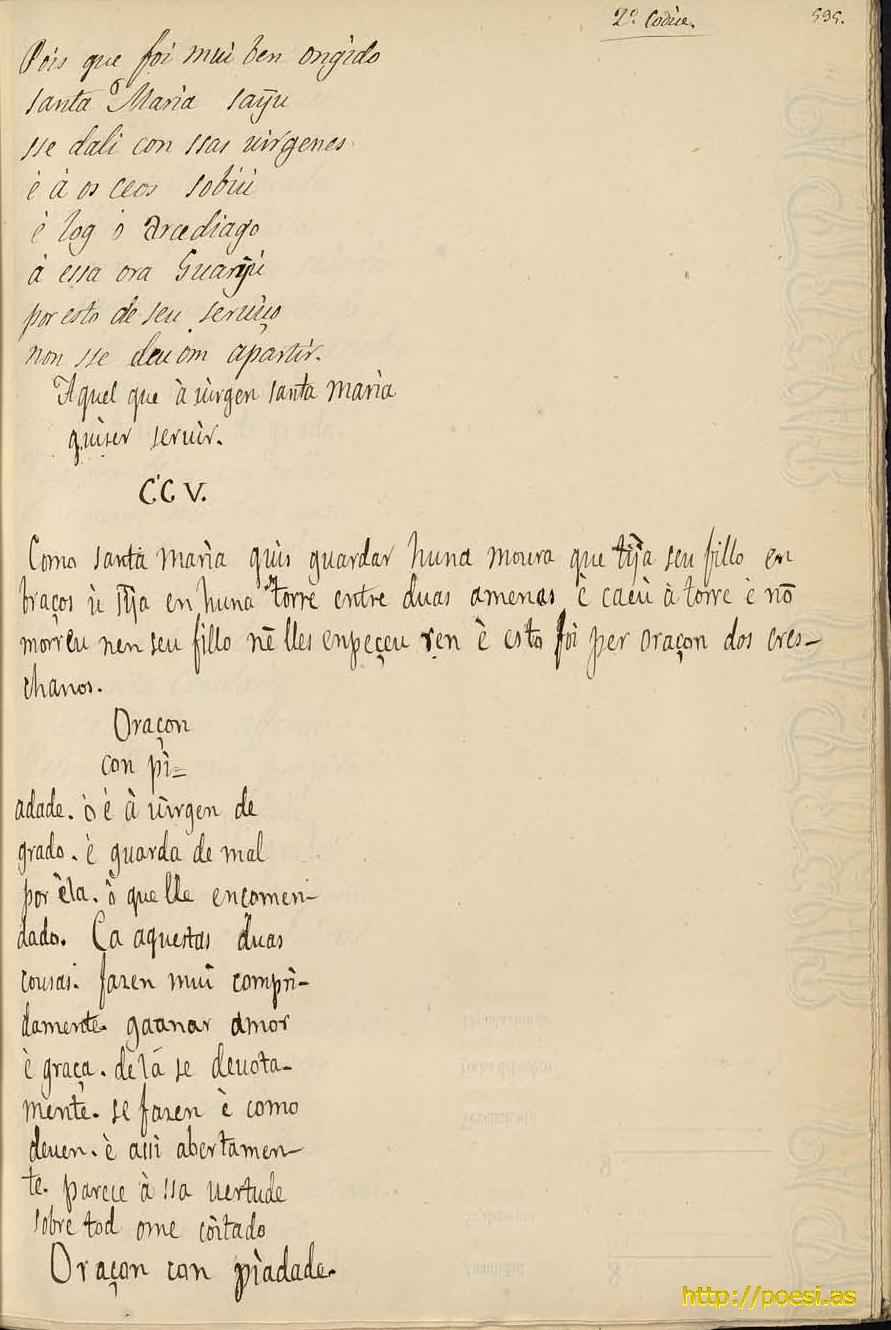 2º Codice. 595.
Pois que foi mui ben ongido
santa Maria sayu
sse dali con ssas uirgenes
è à os ceos sobiú
è log ò arcediago
à essa ora Guarijú
por esto de seu seruiço
non sse deu om apartir.
Aquel que à uirgen santa maria
quiser seruir.
CCV.
Como santa maria quis guardar huna moura que tijia seu fillo en
braços ù sija en huna torre entre duas amenas è caeu à torre è nō
morreu nen seu fillo nē lles enpeçeu ren è esto foi per oraçon dos cres-
chanos.
Oraçon
con pi=
adade. ò è à uirgen de
grado. è guarda de mal
por èla. ò que lle encomen-
dado. Ca aquestas duas
cousas. fazen mui compri-
damente. gaanar amor
è graça. delá se deuota-
mente. se fazen è como
deuen. è assi abertamen-
te. parece à ssa uertude
sobre tod ome còitado
Oraçon con piadade.
http://poesi.as